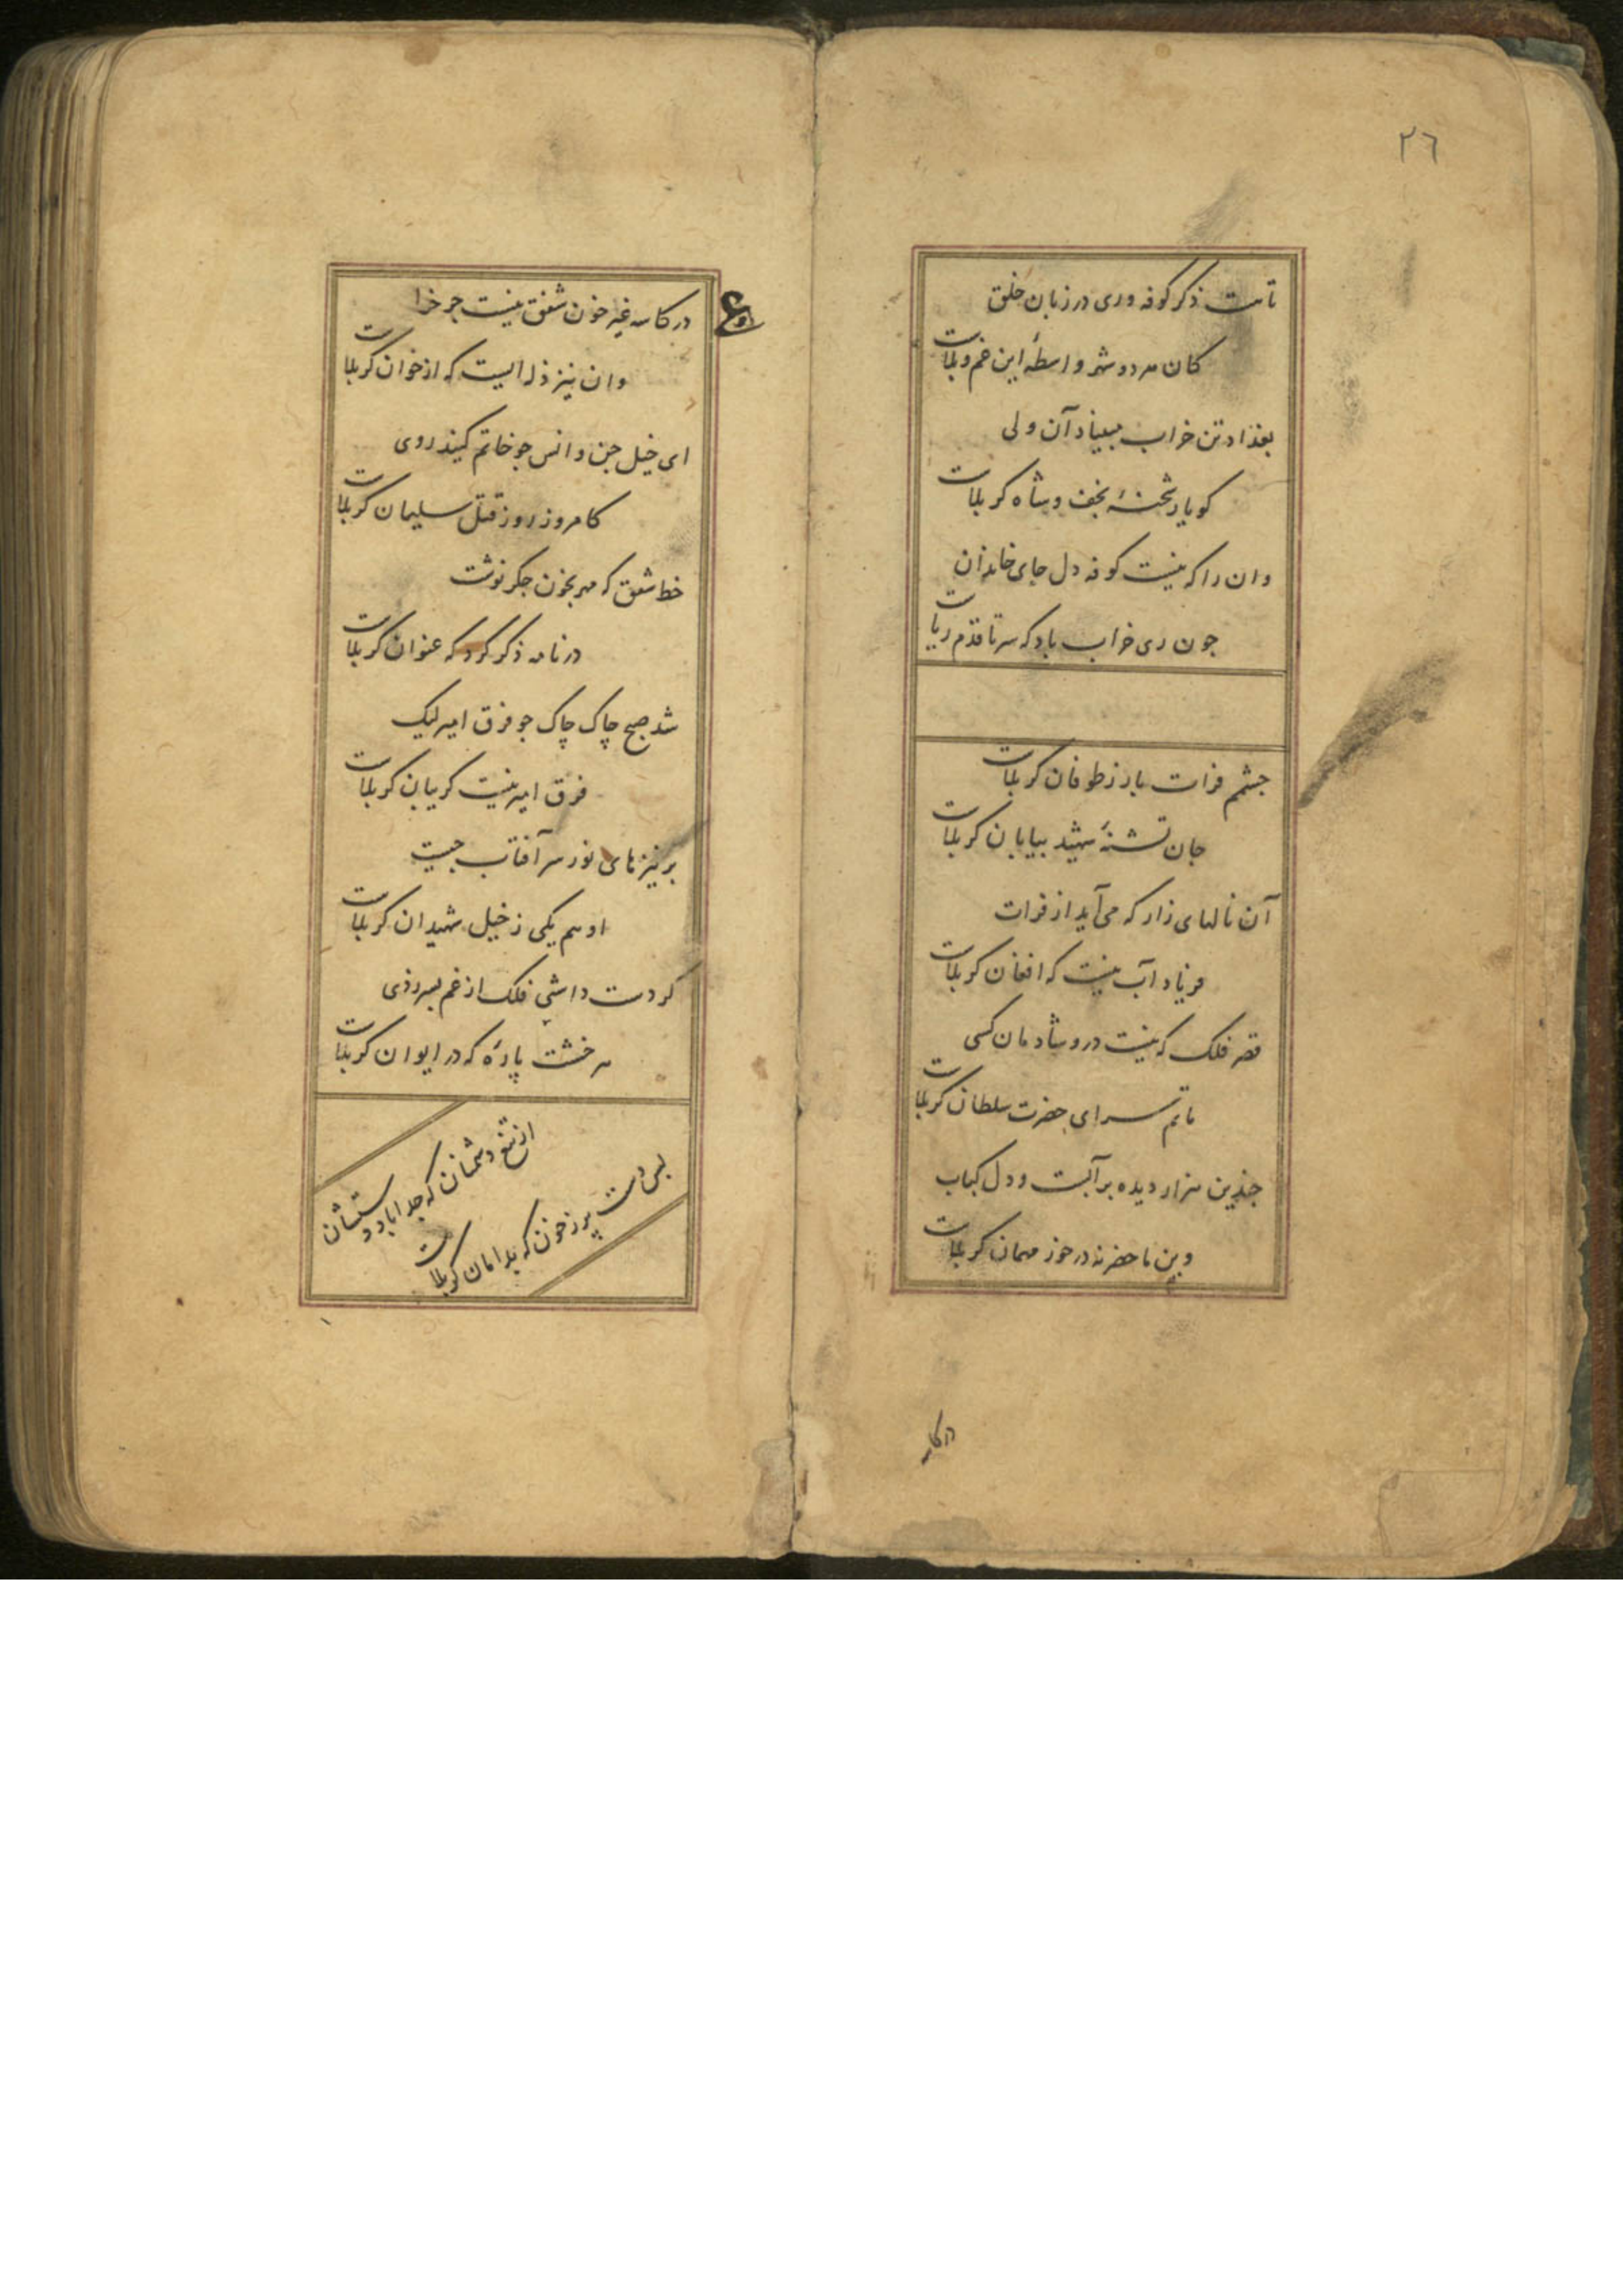 ٢٦
تا هست ذکر کوفه و ری در زبان خلق
کان هر دو شهر واسطهٔ این غم و بلاست
بغداد تن خراب مبیناد آن ولی
کو یار شحنهٔ نجف و شاه کربلاست
وان را که نیست کوفه دل جای خاندان
جون ری خراب باد که سر تا قدم ریاست
جشم فرات باز ز طوفان کربلاست
جان تشنهٔ شهید بیابان کربلاست
آن نالهای زار که می آید از فرات
فریاد آب نیست که افغان کربلاست
قصر فلک که نیست درو شادمان کسی
ماتم سرای حضرت سلطان کربلاست
جندین هزار دیده بر آبست و دل کباب
وین ماحضر نه درخوز مهمان کربلاست
در کاسه
در کاسه غیر خون شفق نیست جرخ را
وان نیز ذله ایست که از خوان کربلاست
ای خیل جن و انس جو خاتم کنید روی
کامروز روز قتل سلیمان کربلاست
خط شفق که مهر بخون جکر نوشت
در نامه ذکر کرد که عنوان کربلاست
شد صبح چاک چاک جو فرق امیر لیک
فرق امیر نیست کریبان کربلاست
بر نیزهای نور سر آفتاب جیست
او هم یکی ز خیل شهیدان کربلاست
کر دست داشتی فلک از غم بسر زدی
هر خشت پارهٔ که در ایوان کربلاست
از تیغ دشمنان که جدا باد دستشان
بس دست پر ز خون که بدامان کربلاست